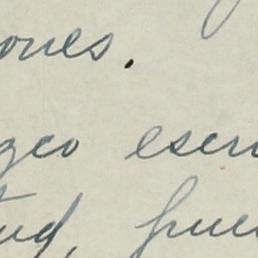 ones.
geo escri
tud, pue